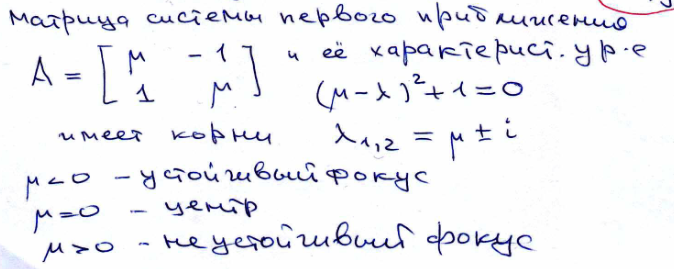 матрица системы первого приближения
A = [ μ -1 ] и её характерист. ур-е
[ 1 μ ] (μ-λ)²+1=0
имеет корни λ₁,₂ = μ ± i
μ<0 - устойчивый фокус
μ=0 - центр
μ>0 - неустойчивый фокус